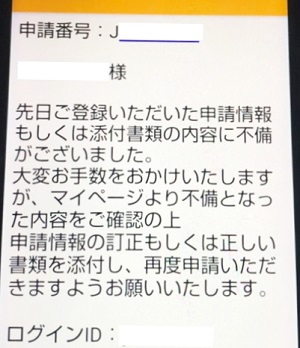 申請番号：J
様
先日ご登録いただいた申請情報
もしくは添付書類の内容に不備
がございました。
大変お手数をおかけいたします
が、マイページより不備となっ
た内容をご確認の上
申請情報の訂正もしくは正しい
書類を添付し、再度申請いただ
きますようお願いいたします。
ログインID：